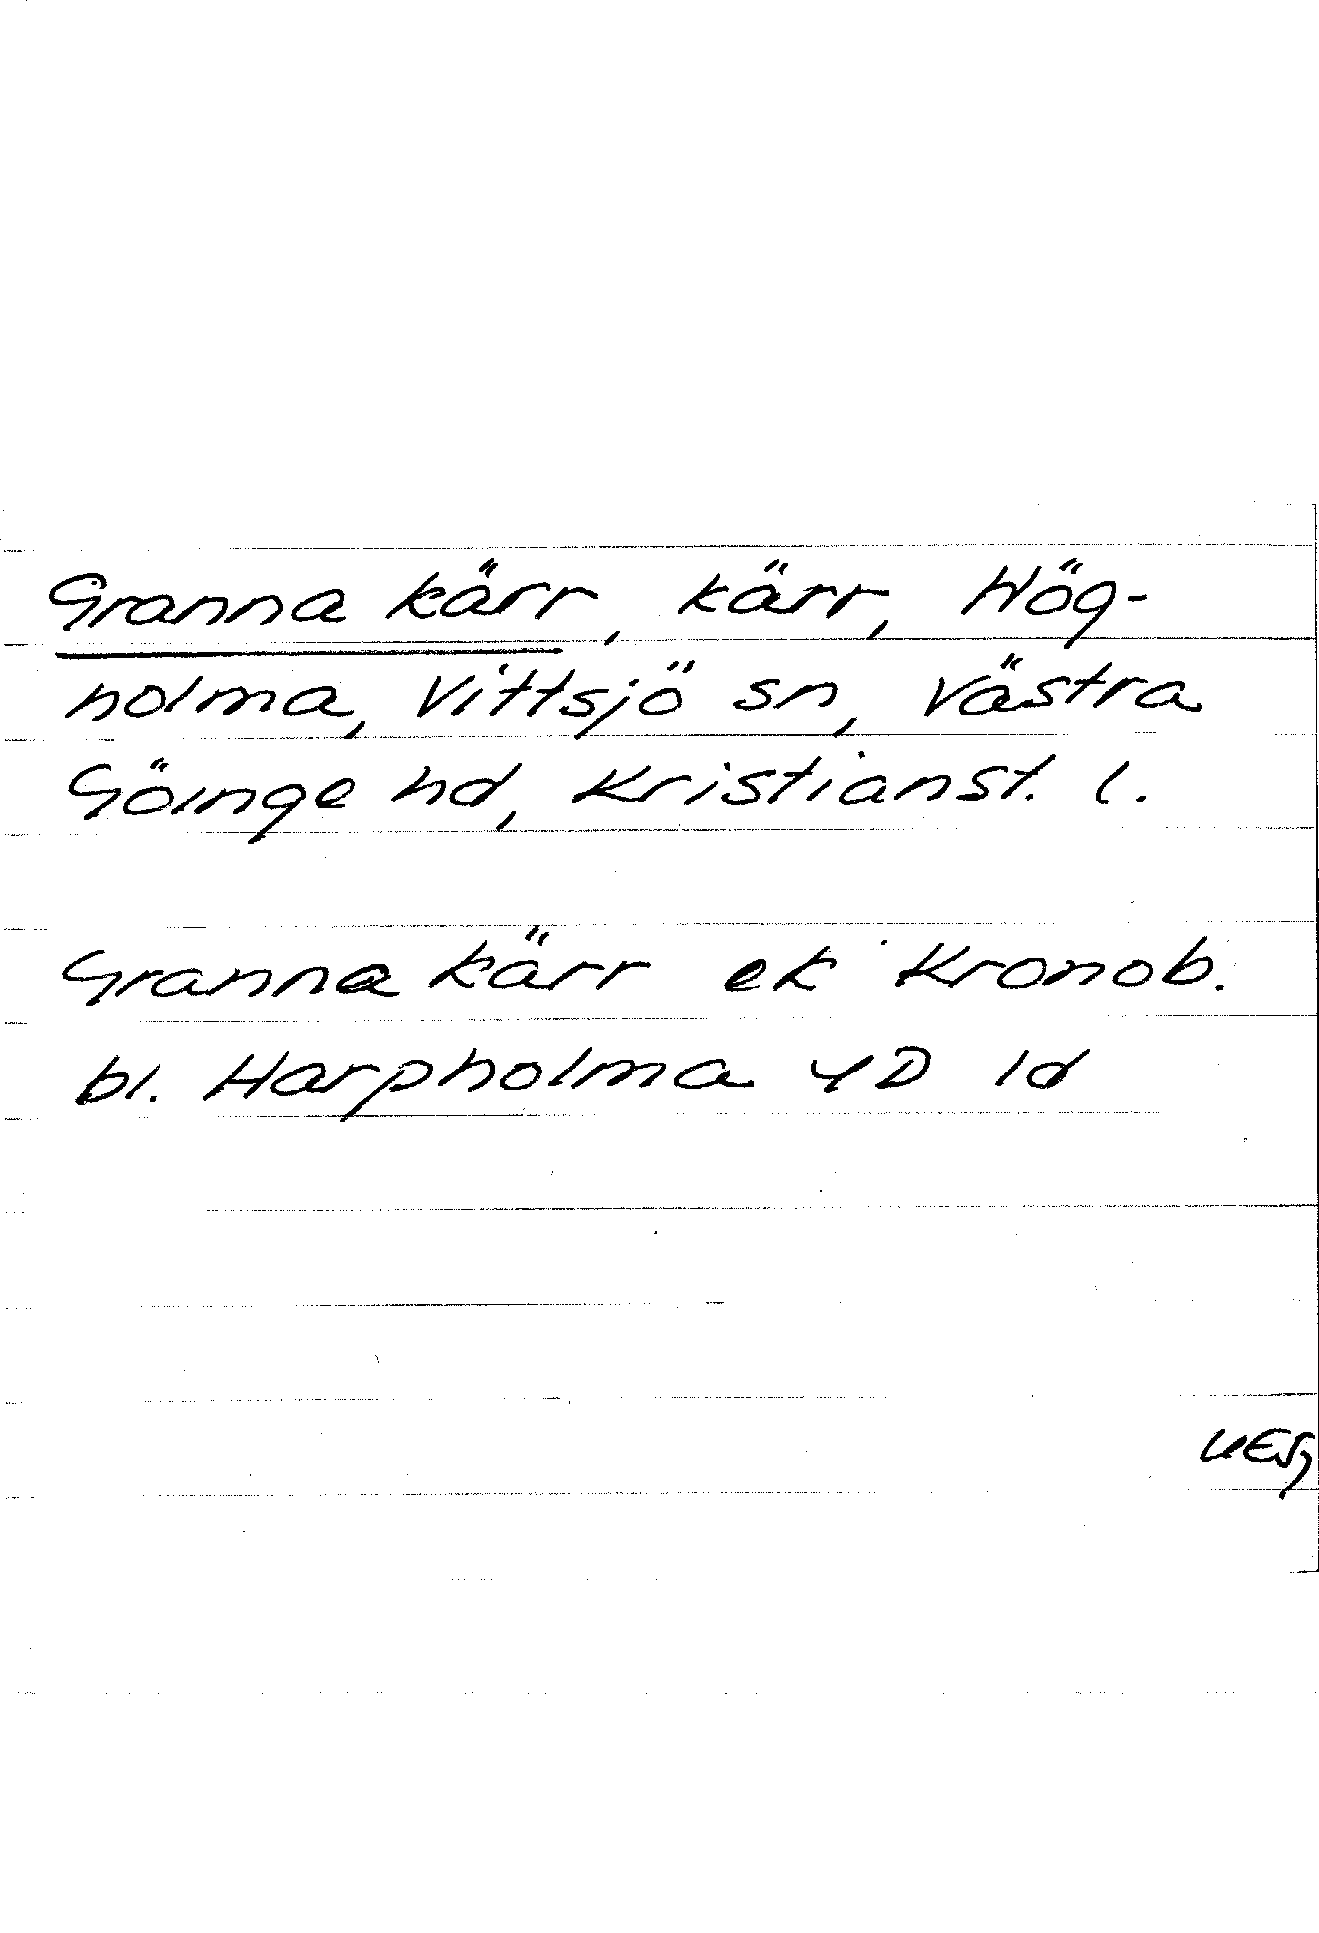 Granna kärr, kärr, Hög-
holma, Vittsjö sn, Västra
Göinge hd, Kristianst. l.
Granna kärr ek Kronob.
bl. Harpholma 4D 1d